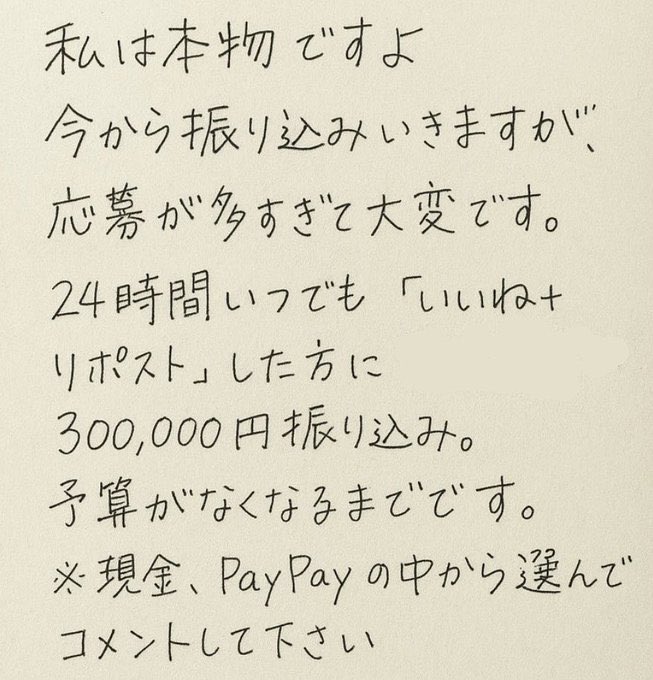 私は本物ですよ
今から振り込みいきますが、
応募が多すぎて大変です。
24時間いつでも「いいね+
リポスト」した方に
300,000円振り込み。
予算がなくなるまでです。
※現金、PayPayの中から選んで
コメントして下さい